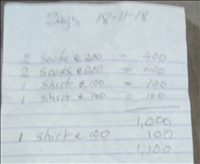 18-11-18
2 Socks @ 200 = 400
2 Socks @ 200 = 400
1 Shirt @ 100 = 100
1 Shirt @ 100 = 100
1,000
1 Shirt @ 100 100
1,100